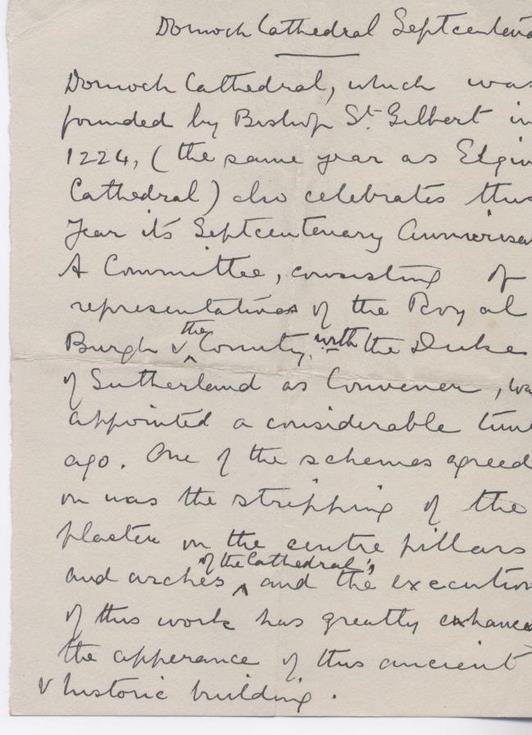 Dornoch Cathedral Septcentena
Dornoch Cathedral, which was
founded by Bishop St. Gilbert in
1224, (the same year as Elgin
Cathedral) also celebrates this
Year its Septcentenary Anniversa
A Committee, consisting of
representatives of the Royal
Burgh & the County, with the Duke
of Sutherland as Convener, wa
appointed a considerable time
ago. One of the schemes agreed
on was the stripping of the
plaster on the centre pillars
and arches of the Cathedral, and the execution
of this work has greatly enhance
the apperance of this ancient
& historic building.